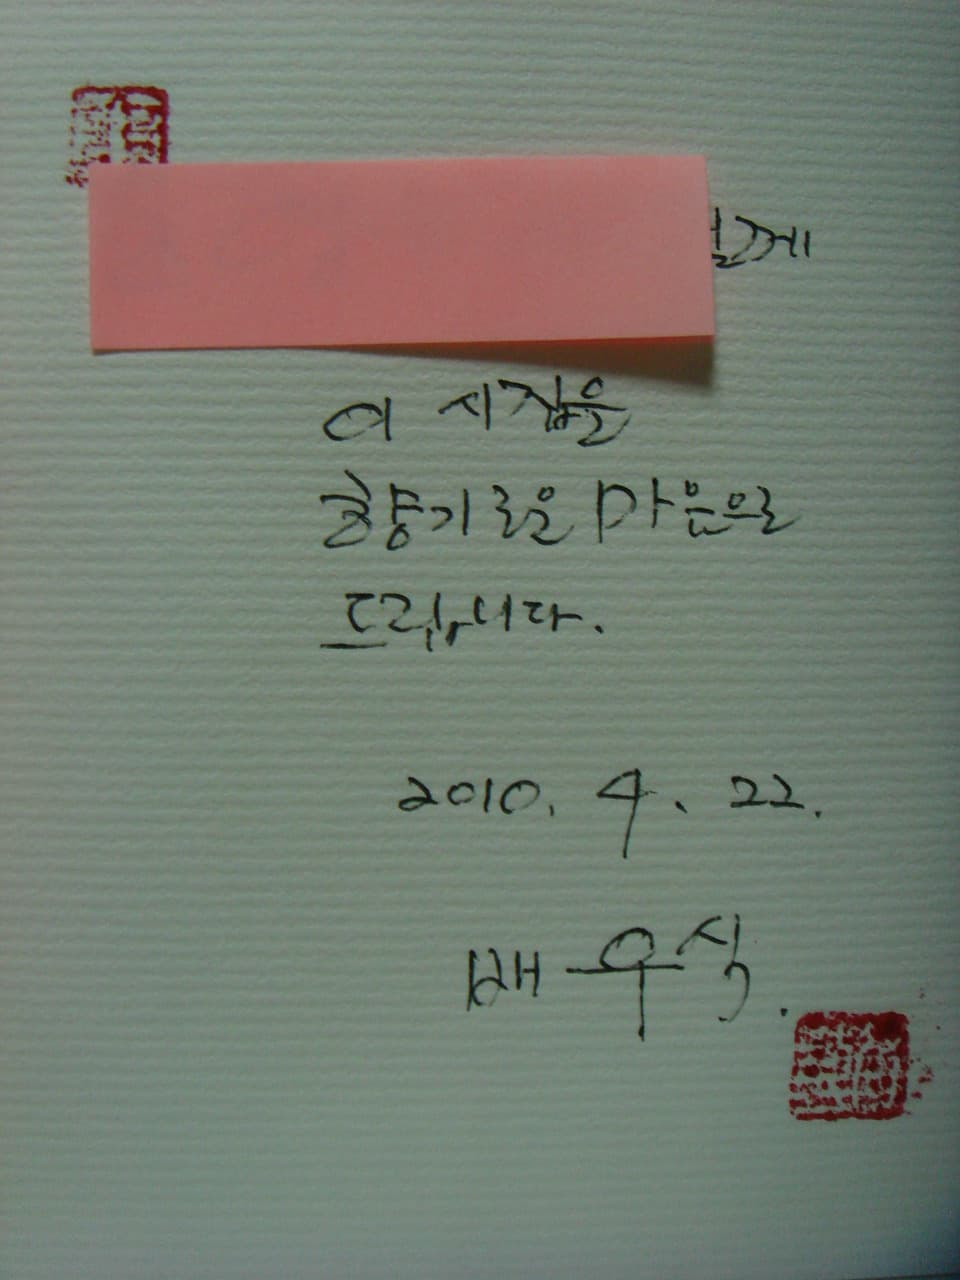 께
이 시집을
향기로운 마음으로
드립니다.
2010. 4. 22.
배우식.